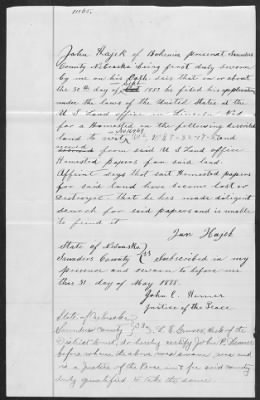 11105.
John Hajek of Bohemia precinct Saunders
County Nebraska being first duty sworn
by me on his Oath. says that on or about
the 30th day of Sept 1887 he filed his application
under the laws of the United States at the
U S Land office
for a Homestead in the following described
land to wit
from said U S Land office
Homestead papers for said land.
Affiant says that said Homestead papers
for said land have become lost or
destroyed. That he has made diligent
search for said papers and is unable
to find it
Jan Hajek
State of Nebraska
Saunders County } SS Subscribed in my
presence and sworn to before me
this 31 day of May 1888.
John E.
Justice of the Peace
State of Nebraska
Saunders County } SS Clerk of the
District Court, do hereby certify John
before whom the above was sworn, was and
is a Justice of the Peace in & for said county
duly qualified to take the same